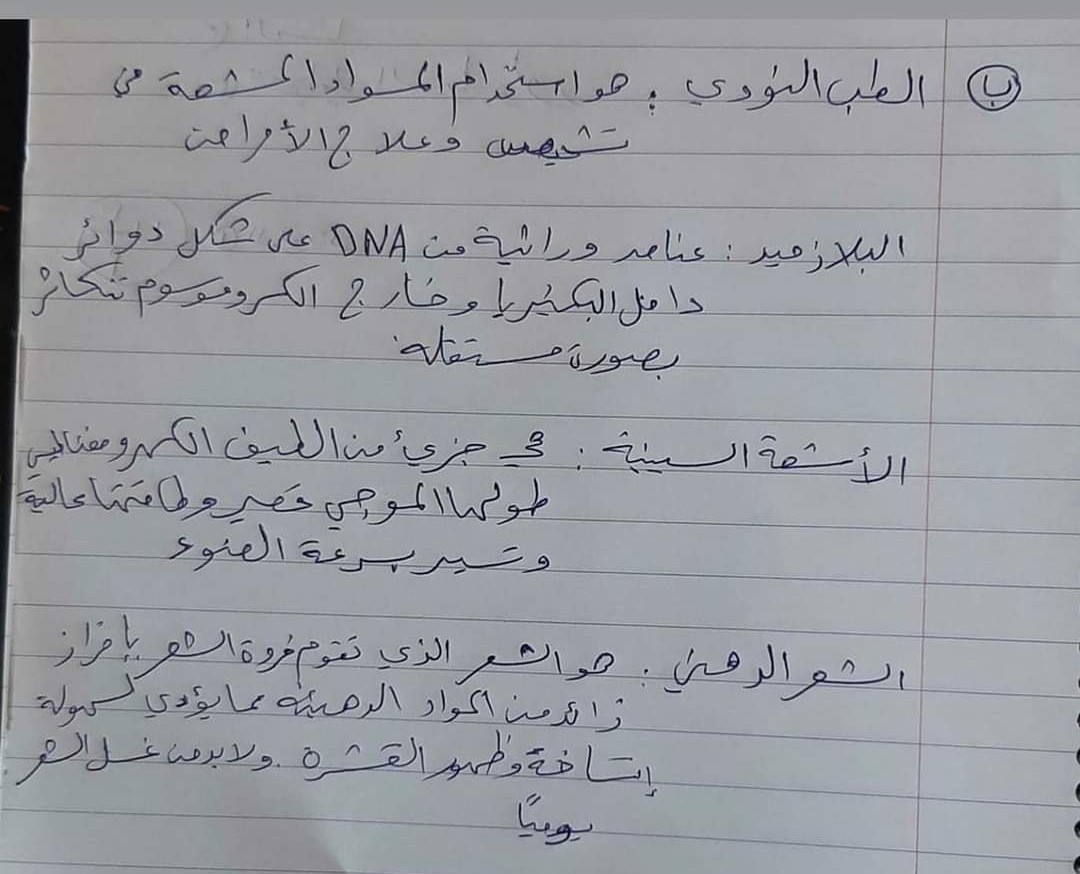 ب الطب النووي : هو استخدام المواد المشعة في
تشخيص وعلاج الأمراض
البلازميد : عناصر وراثية من DNA على شكل دوائر
داخل البكتيريا وخارج الكروموسوم تتكاثر
بصورة مستقلة.
الأشعة السينية : هي جزيء من الطيف الكهرومغناطيسي
طولها الموجي قصير وطاقتها عالية
وتسير بسرعة الضوء
الشعر الدهني : هو الشعر الذي تقوم فروة الشعر بإفراز
زائد من المواد الدهنية مما يؤدي لسهولة
إتساخة وظهور القشرة . ولابد من غسل الشعر
يوميًا